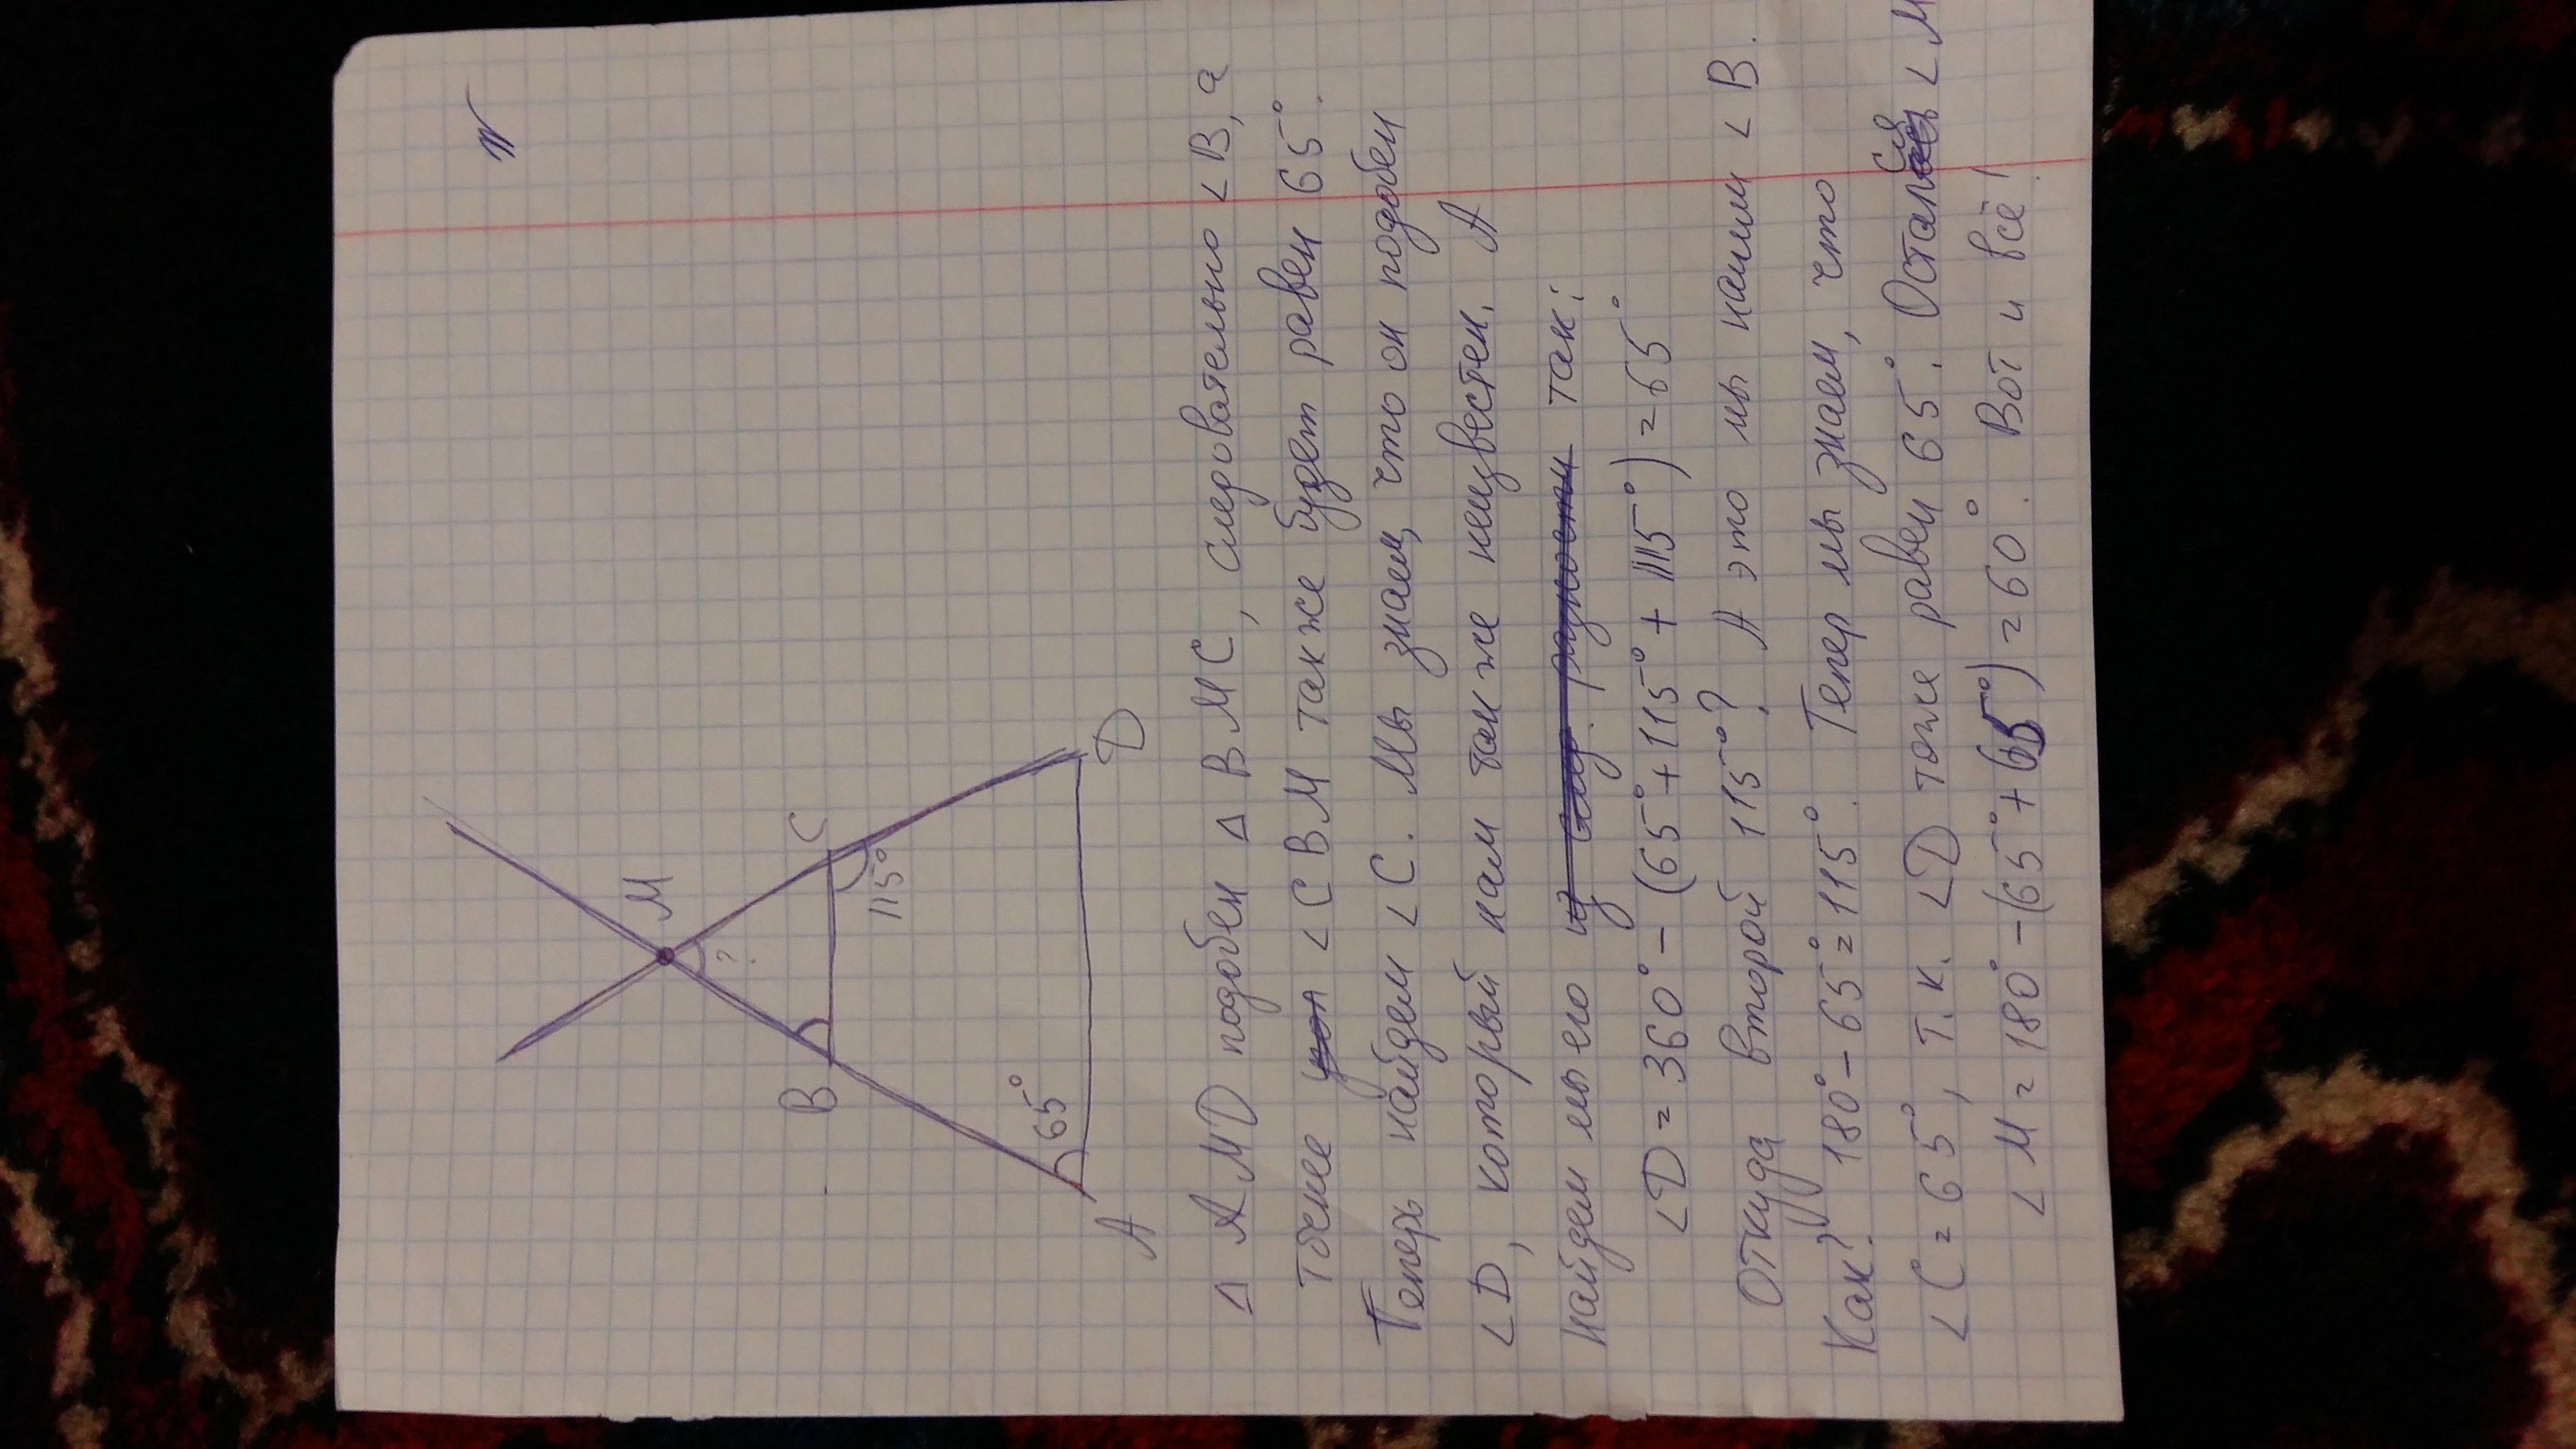 M
?
B C
115°
65°
A D
Δ AMD подобен Δ BMC, следовательно <B, а
точнее <CBM также будет равен 65°.
Теперь найдем <C. Мы знаем, что он подобен
<D, который нам также неизвестен. А
найдем мы его так:
<D = 360° - (65°+115° + 115°) = 65°
Откуда второй 115°? А это мы нашли <B.
Как? 180°-65°=115°. Тепер мы знаем, что
<C = 65°, т.к. <D тоже равен 65°. Остался <M
<M = 180° - (65°+65°) = 60°. Вот и всё!